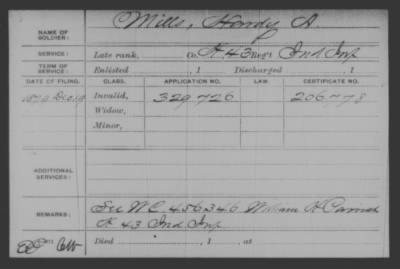 NAME OF SOLDIER: Mills, Hardy A
SERVICE: Late rank, Co. K 43 Reg't Ind Inf
TERM OF SERVICE: Enlisted , 1 Discharged , 1
DATE OF FILING. CLASS. APPLICATION NO. LAW. CERTIFICATE NO.
Invalid, 329,726 206,778
Widow,
Minor,
ADDITIONAL SERVICES:
REMARKS: See WC 456346 William H
K 43 Ind Inf
Died , 1 , at